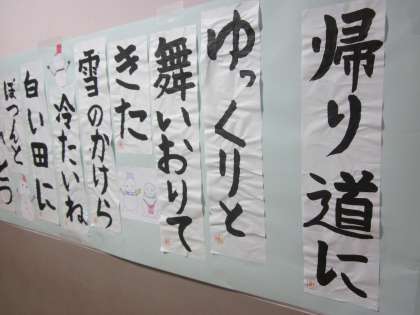 帰り道に
ゆっくりと
舞いおりて
きた
雪のかけら
冷たいね
白い田に
ぽつんと